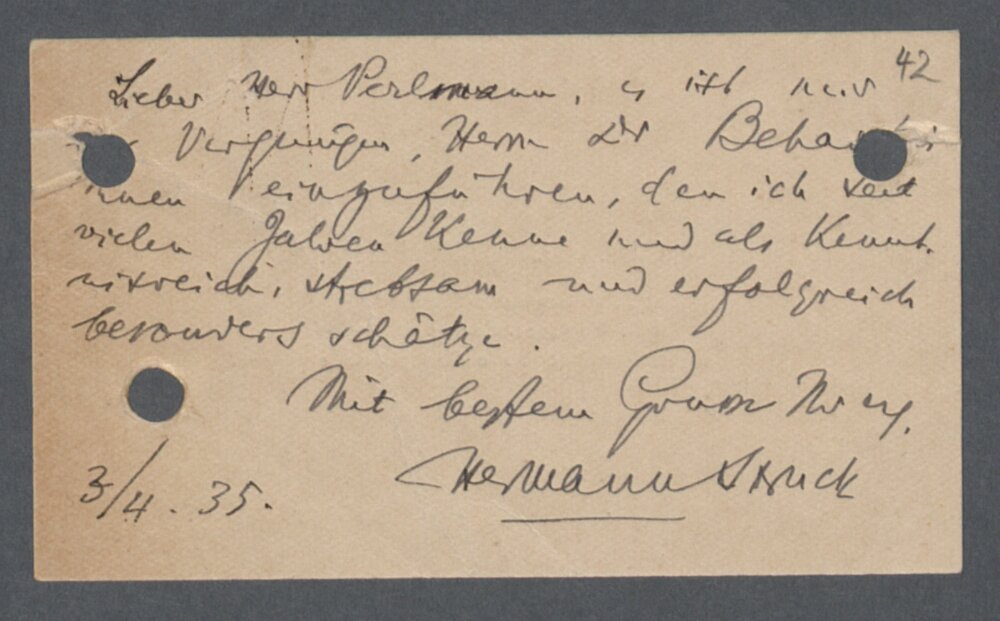 42
Lieber Herr Perlmann, es ist mir
Vergnügen, Herrn Dr
einzuführen, den ich seit
vielen Jahren Kenne und als Kennt-
nisreich, strebsam und erfolgreich
besonders schätze.
Mit bestem Gruss Ihr erg.
Hermann Struck
3/4. 35.